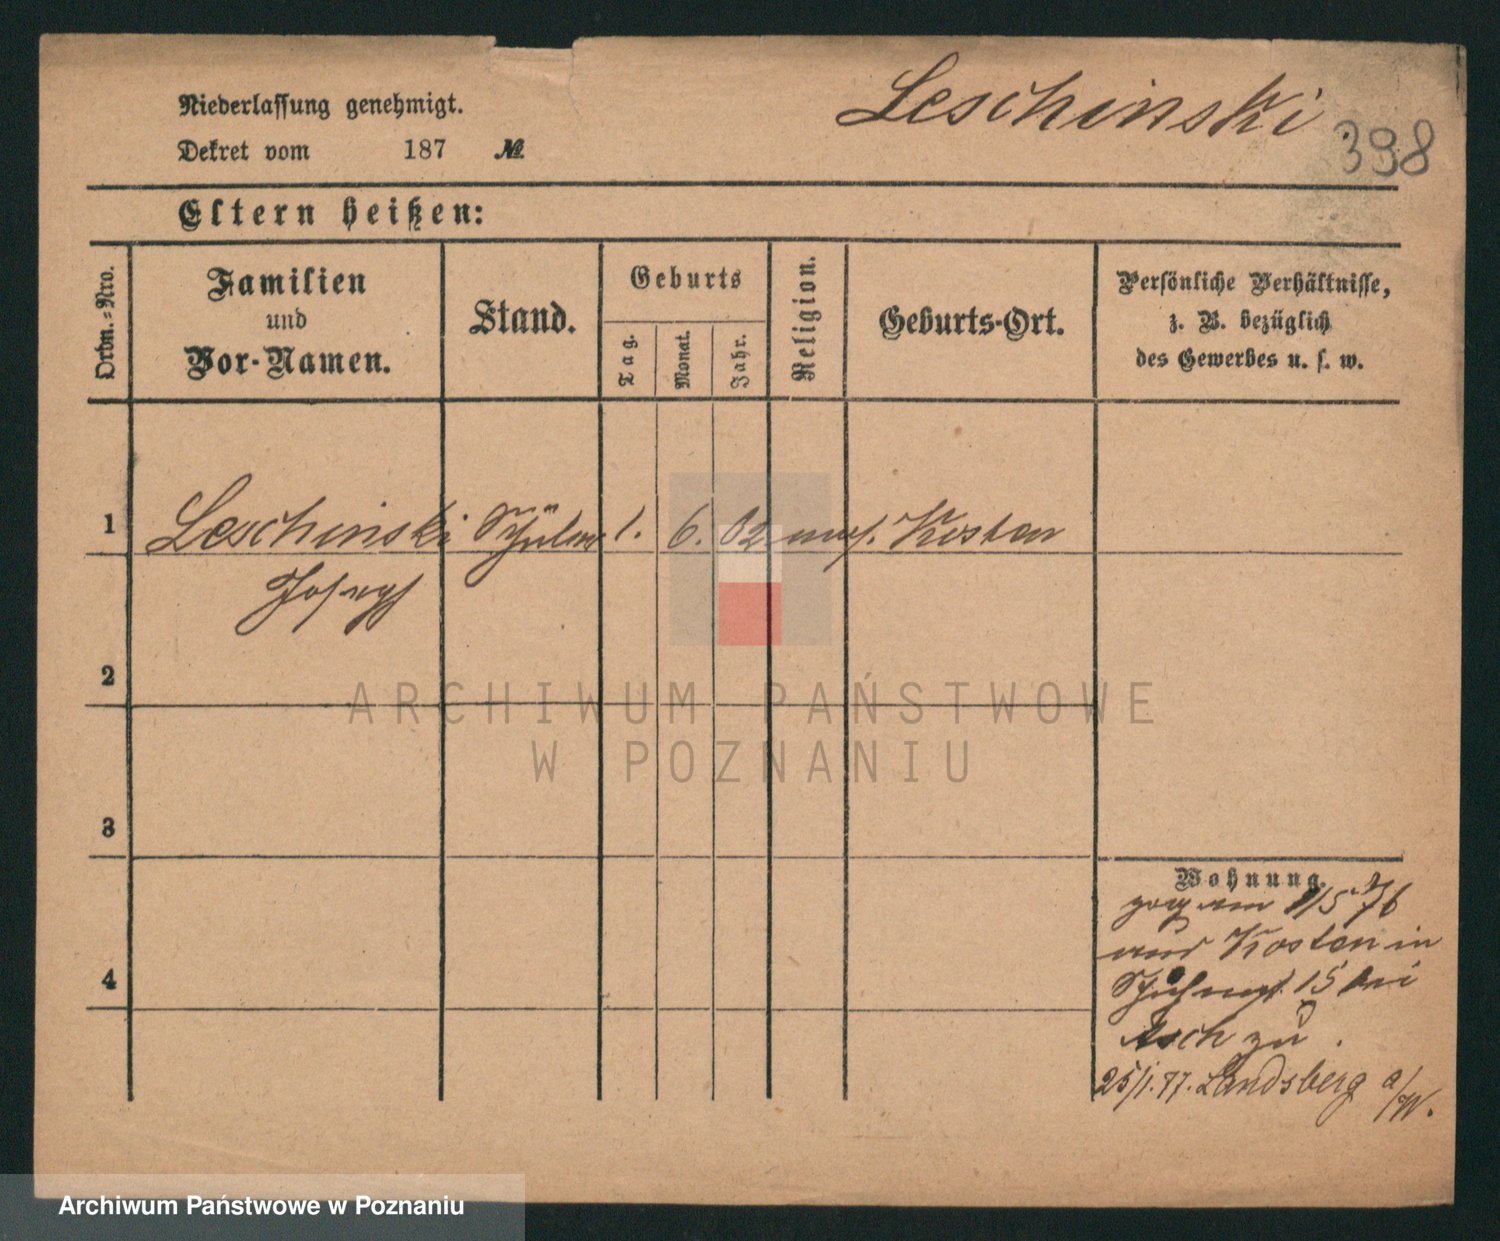 Leschinski
398
Niederlassung genehmigt.
Dekret vom 187 №
Eltern heißen:
Ordn.-Nro.
Familien
und
Vor-Namen.
Stand.
Geburts
Tag.
Monat.
Jahr.
Religion.
Geburts-Ort.
Persönliche Verhältnisse,
z. B. bezüglich
des Gewerbes u. s. w.
1
Leschinski Schüler 1. 6. 62 mos. Kosten
Joseph
2
3
4
Wohnung.
zog am 1/5 76
aus Kosten in
15 bei
Asch zu.
25/1.77. Landsberg a/W.
ARCHIWUM PAŃSTWOWE
W POZNANIU
Archiwum Państwowe w Poznaniu